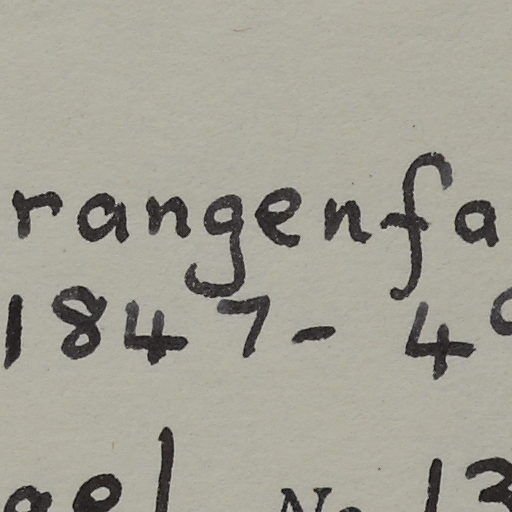 rangenfa
1847- 49
gel No 13